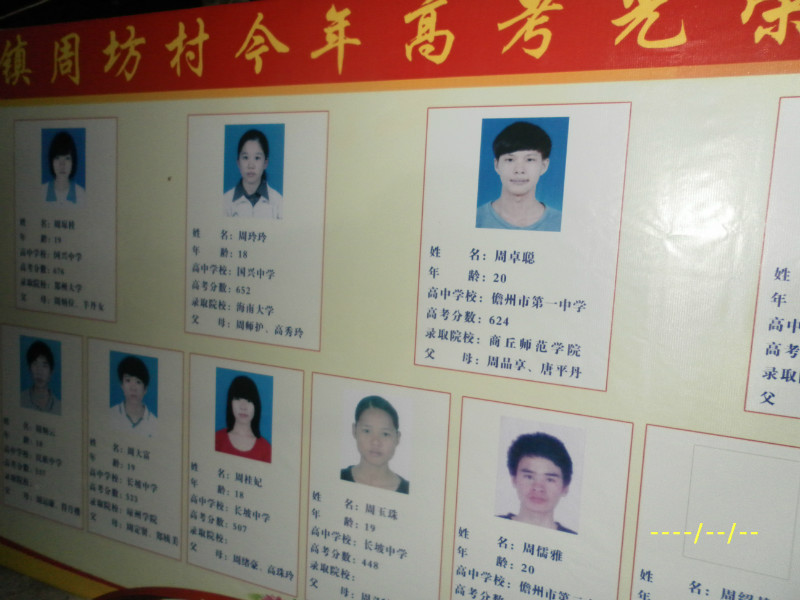 镇周坊村今年高考光荣
姓 名：
年 龄：19
高中学校：国兴中学
高考分数：676
录取院校：郑州大学
父 母：
姓 名：周玲玲
年 龄：18
高中学校：国兴中学
高考分数：652
录取院校：海南大学
父 母：周师护、高秀玲
姓 名：周卓聪
年 龄：20
高中学校：儋州市第一中学
高考分数：624
录取院校：商丘师范学院
父 母：周品享、唐平丹
姓
年
高中
高考
录取
父
姓 名：
年 龄：
高中学校：
高考分数：
录取院校：
父 母：
姓 名：周大富
年 龄：19
高中学校：长坡中学
高考分数：523
录取院校：
父 母：
姓 名：周桂妃
年 龄：18
高中学校：长坡中学
高考分数：597
录取院校：
父 母：周绪豪、高珠玲
姓 名：周玉珠
年 龄：19
高中学校：长坡中学
高考分数：448
录取院校：
父
姓 名：周儒雅
年 龄：20
高中学校：儋州市第一
姓 名：周
年
----/--/--